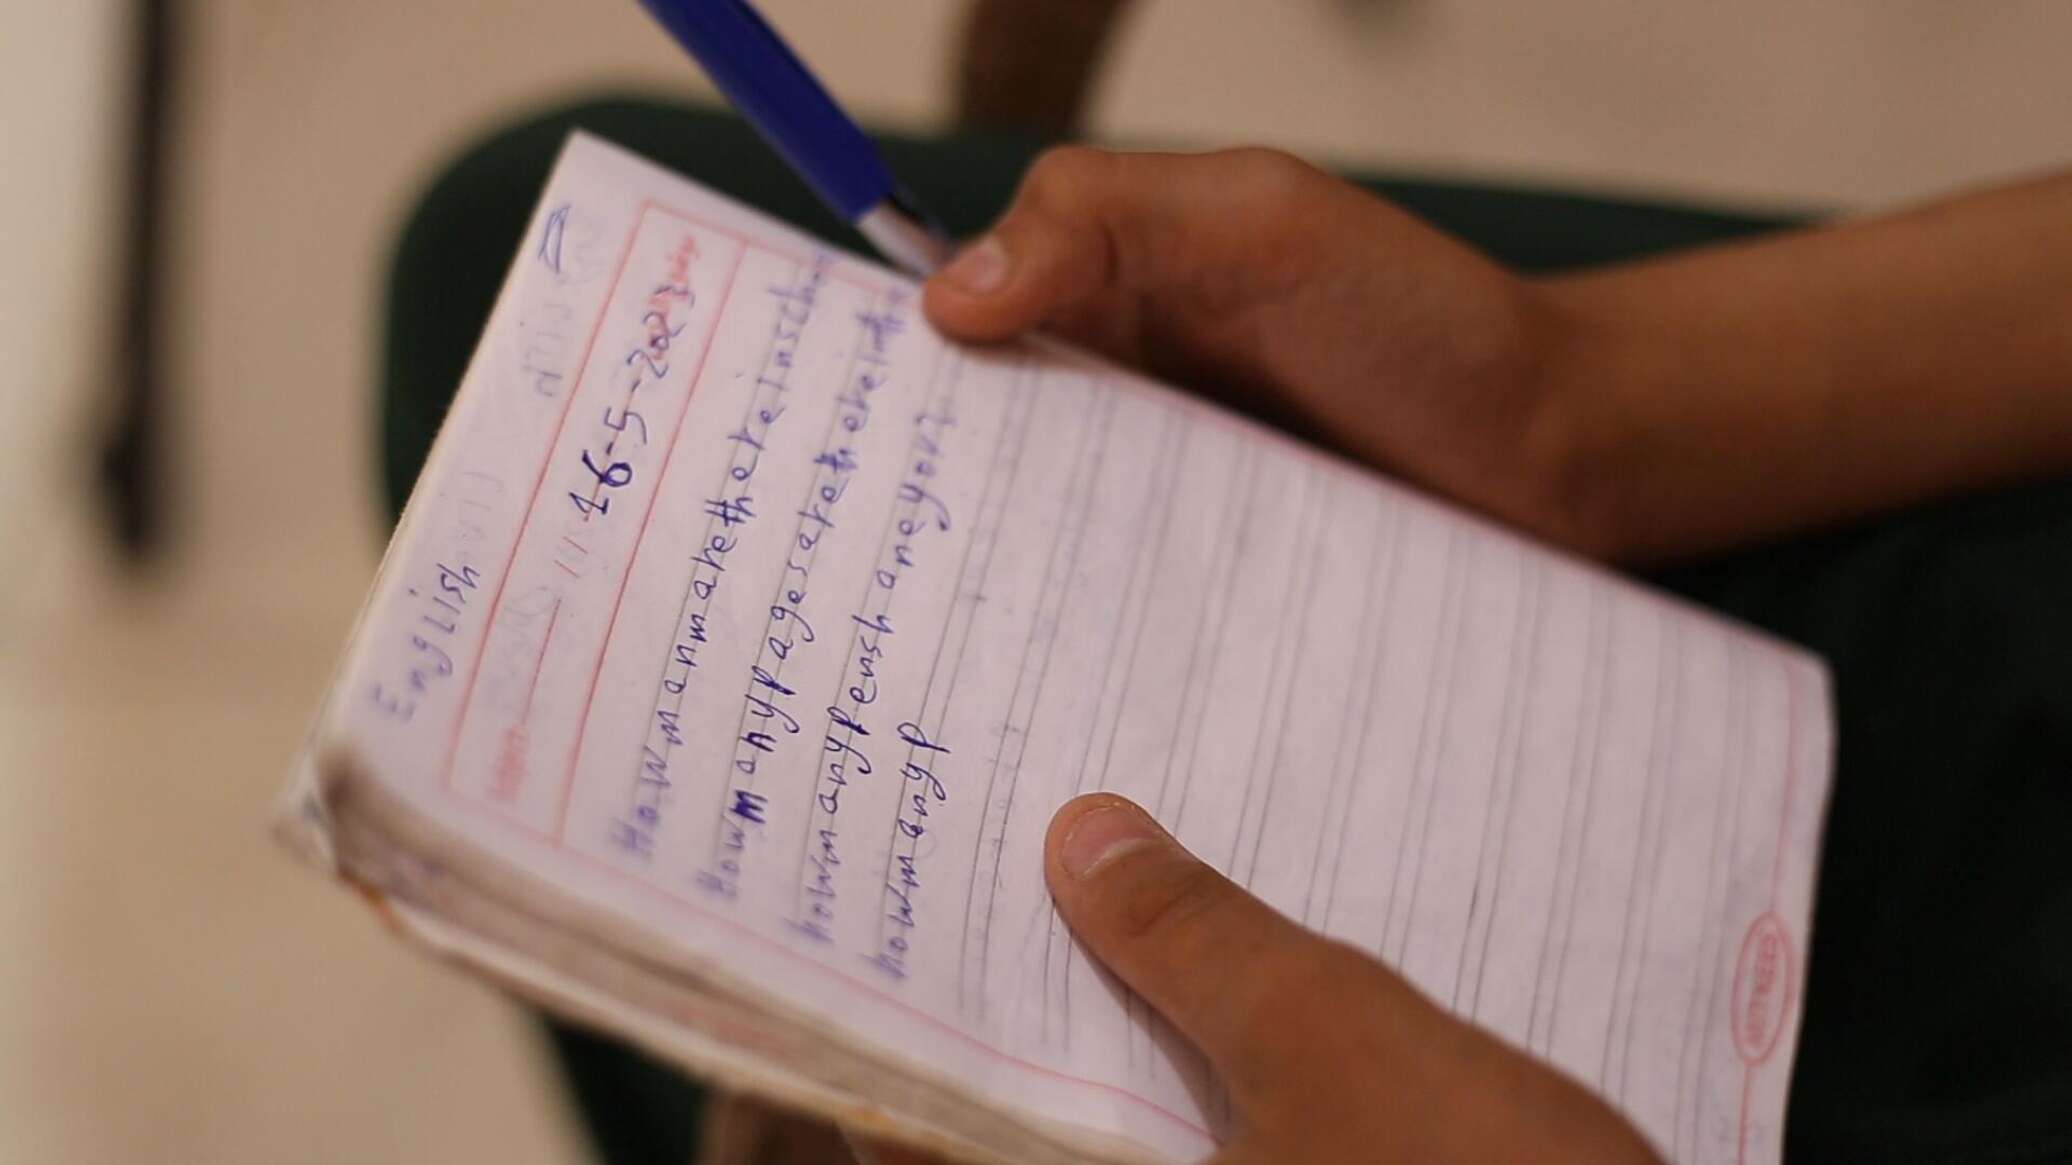 English
16-5-2023
Howmanmarethereinsch
Howmanypagesarethereinth
howmanypenshaneyou?
howmanyp